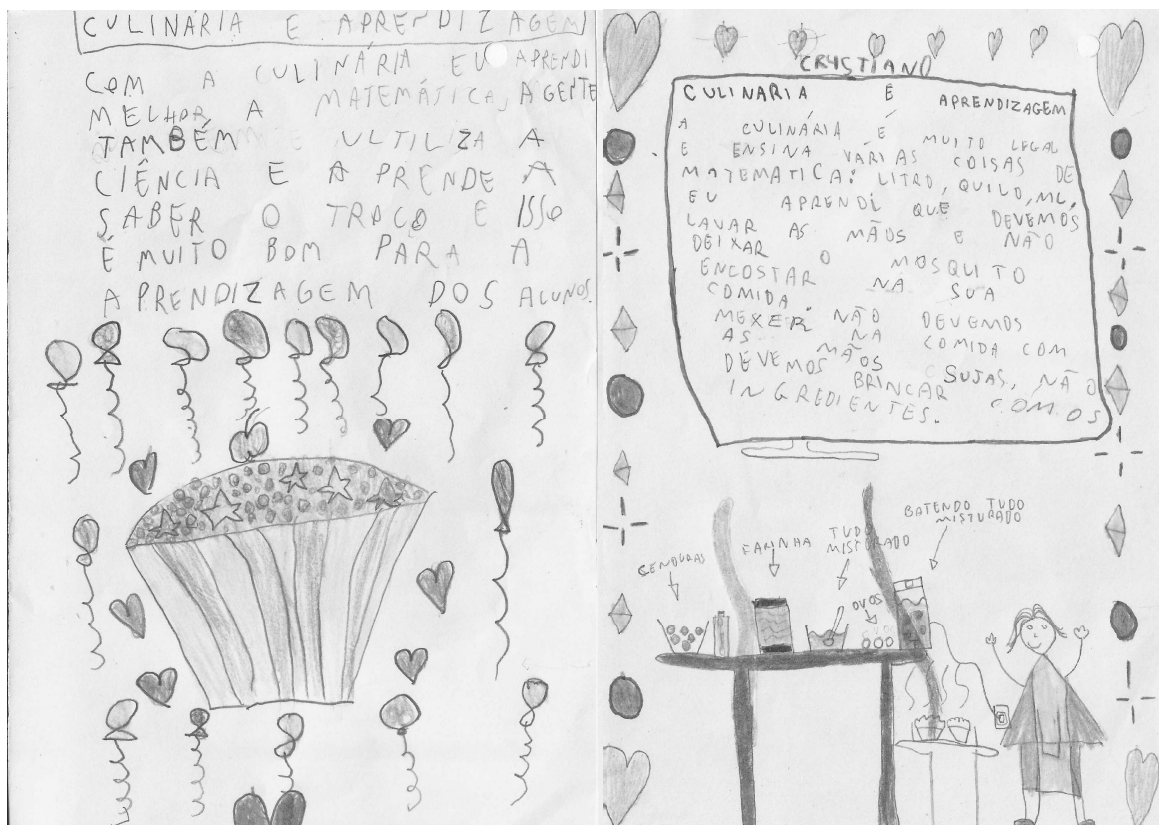 CULINÁRIA E APRENDIZAGEM
COM A CULINÁRIA EU APRENDI
MELHOR A MATEMÁTICA, AGENTE
TAMBÉM ULTILIZA A
CIÊNCIA E APRENDE A
SABER O TRAÇO E ISSO
É MUITO BOM PARA A
APRENDIZAGEM DOS ALUNOS.
CRYSTIANO
CULINARIA É APRENDIZAGEM
A CULINÁRIA É MUITO LEGAL
E ENSINA VÁRIAS COISAS DE
MATEMATICA: LITRO, QUILO, ML,
EU APRENDI QUE DEVEMOS
LAVAR AS MÃOS E NÃO
DEIXAR O MOSQUITO
ENCOSTAR NA SUA
COMIDA. NÃO DEVEMOS
MEXER NA COMIDA COM
AS MÃOS SUJAS, NÃO
DEVEMOS BRINCAR COM OS
INGREDIENTES.
BATENDO TUDO
MISTURADO
TUDO
MISTURADO
FARINHA
CENOURAS
OVOS